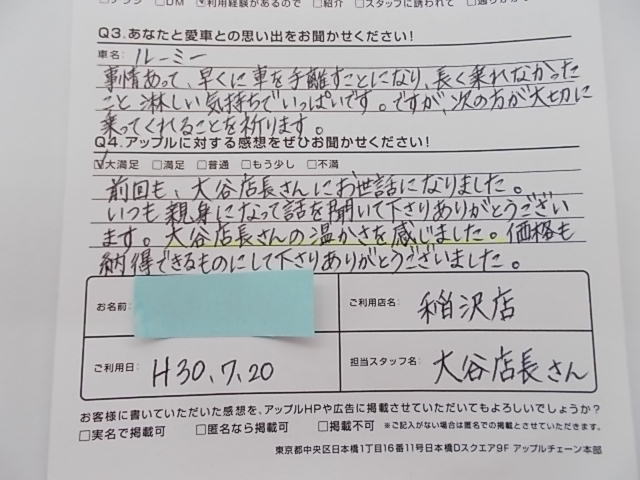 □チラシ □DM ☑利用経験があるので □紹介 □スタッフに誘われて
Q3.あなたと愛車との思い出をお聞かせください!
車名: ルーミー
事情あって、早くに車を手離すことになり、長く乗れなかった
こと淋しい気持ちでいっぱいです。ですが、次の方が大切に
乗ってくれることを祈ります。
Q4.アップルに対する感想をぜひお聞かせください!
☑大満足 □満足 □普通 □もう少し □不満
前回も、大谷店長さんにお世話になりました。
いつも親身になって話を聞いて下さりありがとうござい
ます。大谷店長さんの温かさを感じました。価格も
納得できるものにして下さりありがとうございました。
お名前: ご利用店名: 稲沢店
ご利用日: H30.7.20 担当スタッフ名: 大谷店長さん
お客様に書いていただいた感想を、アップルHPや広告に掲載させていただいてもよろしいでしょうか?
□実名で掲載可 □匿名なら掲載可 □掲載不可 ※ご記入がない場合は匿名での掲載とさせていただきます。
東京都中央区日本橋1丁目16番11号日本橋Dスクエア9F アップルチェーン本部